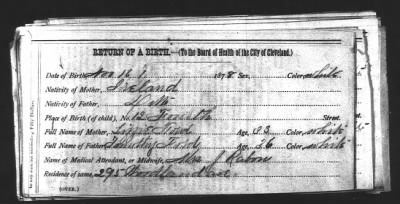 RETURN OF A BIRTH.—(To the Board of Health of the City of Cleveland.)
Date of Birth, Nov 16 1878 Sex, Color, White
Nativity of Mother, Ireland
Nativity of Father, Ditto
Place of Birth (of child), No. 12 Street.
Full Name of Mother, Age, 33 Color, White
Full Name of Father, Timothy Age, 36 Color, White
Name of Medical Attendant, or Midwife, Mrs J
Residence of same, 295 Woodland av
(OVER.)